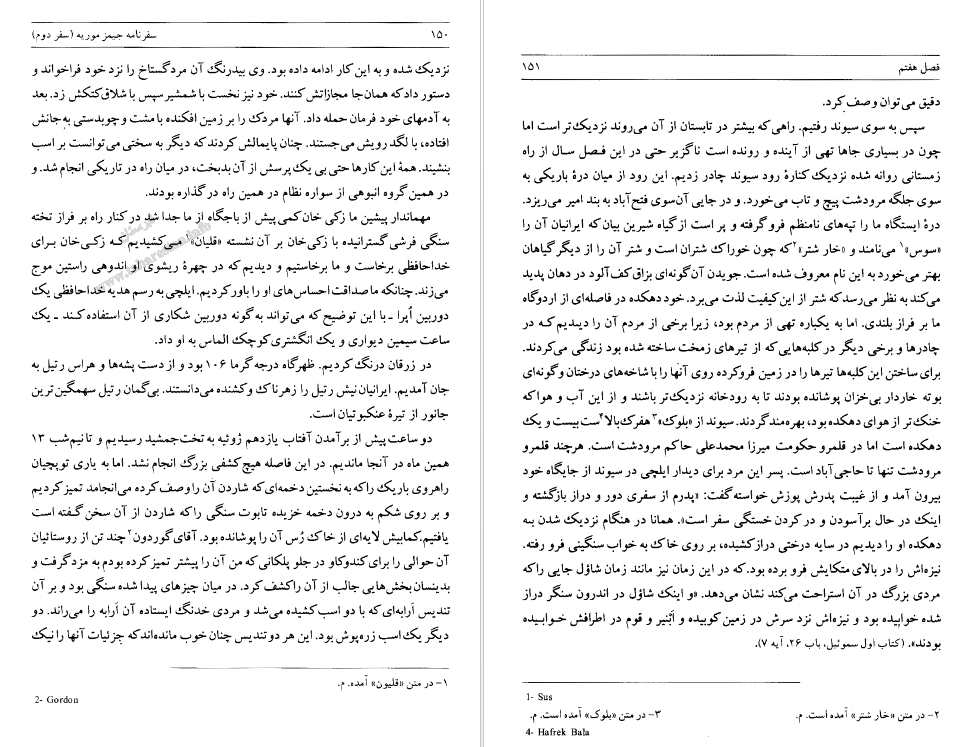 ۱۵۰ سفرنامه جیمز موریه (سفر دوم)
نزدیک شده و به این کار ادامه داده بود. وی بیدرنگ آن مرد گستاخ را نزد خود فراخواند و
دستور داد که همان‌جا مجازاتش کنند. خود نیز نخست با شمشیر سپس با شلاق کتکش زد. بعد
به آدمهای خود فرمان حمله داد. آنها مردک را بر زمین افکنده با مشت و چوبدستی به جانش
افتاده، با لگد رویش می‌جستند. چنان پایمالش کردند که دیگر به سختی می‌توانست بر اسب
بنشیند. همهٔ این کارها حتی بی یک پرسش از آن بدبخت، در میان راه در تاریکی انجام شد. و
در همین گروه انبوهی از سواره نظام در همین راه در گذاره بودند.
مهماندار پیشین ما زکی خان کمی پیش از باجگاه از ما جدا شد. در کنار راه بر فراز تخته
سنگی فرشی گسترانیده با زکی‌خان بر آن نشسته «قلیان»۱ می‌کشیدیم که زکی‌خان برای
خداحافظی برخاست و ما برخاستیم و دیدیم که در چهرهٔ ریشوی او اندوهی راستین موج
می‌زند. چنانکه ما صداقت احساس‌های او را باور کردیم. ایلچی به رسم هدیه خداحافظی یک
دوربین اُپرا ـ با این توضیح که می‌تواند به گونه دوربین شکاری از آن استفاده کند ـ یک
ساعت سیمین دیواری و یک انگشتری کوچک الماس به او داد.
در زرقان درنگ کردیم. ظهرگاه درجه گرما ۱۰۶ بود و از دست پشه‌ها و هراس رتیل به
جان آمدیم. ایرانیان نیش رتیل را زهرناک و کشنده می‌دانستند. بی‌گمان رتیل سهمگین‌ترین
جانور از تیرهٔ عنکبوتیان است.
دو ساعت پیش از برآمدن آفتاب یازدهم ژوئیه به تخت‌جمشید رسیدیم و تا نیم‌شب ۱۳
همین ماه در آنجا ماندیم. در این فاصله هیچ کشفی بزرگ انجام نشد. اما به یاری توپچیان
راهروی باریک را که به نخستین دخمه‌ای که شاردن آن را وصف کرده می‌انجامد تمیز کردیم
و بر روی شکم به درون دخمه خزیده تابوت سنگی را که شاردن از آن سخن گفته است
یافتیم. کمابیش لایه‌ای از خاک رُس آن را پوشانده بود. آقای گوردون۲ چند تن از روستائیان
آن حوالی را برای کندوکاو در جلو پلکانی که من آن را پیشتر تمیز کرده بودم به مزد گرفت و
بدینسان بخش‌هایی جالب از آن را کشف کرد. در میان چیزهای پیدا شده سنگی بود و بر آن
تندیس اَرابه‌ای که با دو اسب کشیده می‌شد و مردی خدنگ ایستاده آن اَرابه را می‌راند. دو
دیگر یک اسب زره‌پوش بود. این هر دو تندیس چنان خوب مانده‌اند که جزئیات آنها را نیک
۱- در متن «قلیون» آمده. م.
2- Gordon
فصل هفتم ۱۵۱
دقیق می‌توان وصف کرد.
سپس به سوی سیوند رفتیم. راهی که بیشتر در تابستان از آن می‌روند نزدیک‌تر است اما
چون در بسیاری جاها تهی از آینده و رونده است ناگزیر حتی در این فصل سال از راه
زمستانی روانه شده نزدیک کنارهٔ رود سیوند چادر زدیم. این رود از میان درهٔ باریکی به
سوی جلگه مرودشت پیچ و تاب می‌خورد. و در جایی آن‌سوی فتح‌آباد به بند امیر می‌ریزد.
درهٔ ایستگاه ما را تپه‌های نامنظم فرو گرفته و پر است از گیاه شیرین بیان که ایرانیان آن را
«سوس»۱ می‌نامند و «خار شتر»۲ که چون خوراک شتران است و شتر آن را از دیگر گیاهان
بهتر می‌خورد به این نام معروف شده است. جویدن آن‌گونه‌ای بزاق کف‌آلود در دهان پدید
می‌کند به نظر می‌رسد که شتر از این کیفیت لذت می‌برد. خود دهکده در فاصله‌ای از اردوگاه
ما بر فراز بلندی. اما به یکباره تهی از مردم بود، زیرا برخی از مردم آن را دیدیم که در
چادرها و برخی دیگر در کلبه‌هایی که از تیرهای زمخت ساخته شده بود زندگی می‌کردند.
برای ساختن این کلبه‌ها تیرها را در زمین فرو کرده روی آنها را با شاخه‌های درختان و گونه‌ای
بوته خاردار بی‌خزان پوشانده بودند تا به رودخانه نزدیک‌تر باشند و از این آب و هوا که
خنک‌تر از هوای دهکده بود، بهره‌مند گردند. سیوند از «بلوک»۳ هفرک بالا۴ست بیست و یک
دهکده است اما در قلمرو حکومت میرزا محمدعلی حاکم مرودشت است. هرچند قلمرو
مرودشت تنها تا حاجی‌آباد است. پسر این مرد برای دیدار ایلچی در سیوند از جایگاه خود
بیرون آمد و از غیبت پدرش پوزش خواسته گفت: «پدرم از سفری دور و دراز بازگشته و
اینک در حال برآسودن و در کردن خستگی سفر است». همانا در هنگام نزدیک شدن به
دهکده او را دیدیم در سایه درختی دراز کشیده، بر روی خاک به خواب سنگینی فرو رفته.
نیزه‌اش را در بالای متکایش فرو برده بود. که در این زمان نیز مانند زمان شاؤل جایی را که
مردی بزرگ در آن استراحت می‌کند نشان می‌دهد. «و اینک شاؤل در اندرون سنگر دراز
شده خوابیده بود و نیزه‌اش نزد سرش در زمین کوبیده و اَبْنیر و قوم در اطرافش خوابیده
بودند». (کتاب اول سموئیل، باب ۲۶، آیه ۷).
1- Sus
۲- در متن «خار شتر» آمده است. م. ۳- در متن «بلوک» آمده است. م.
4- Hafrek Bala